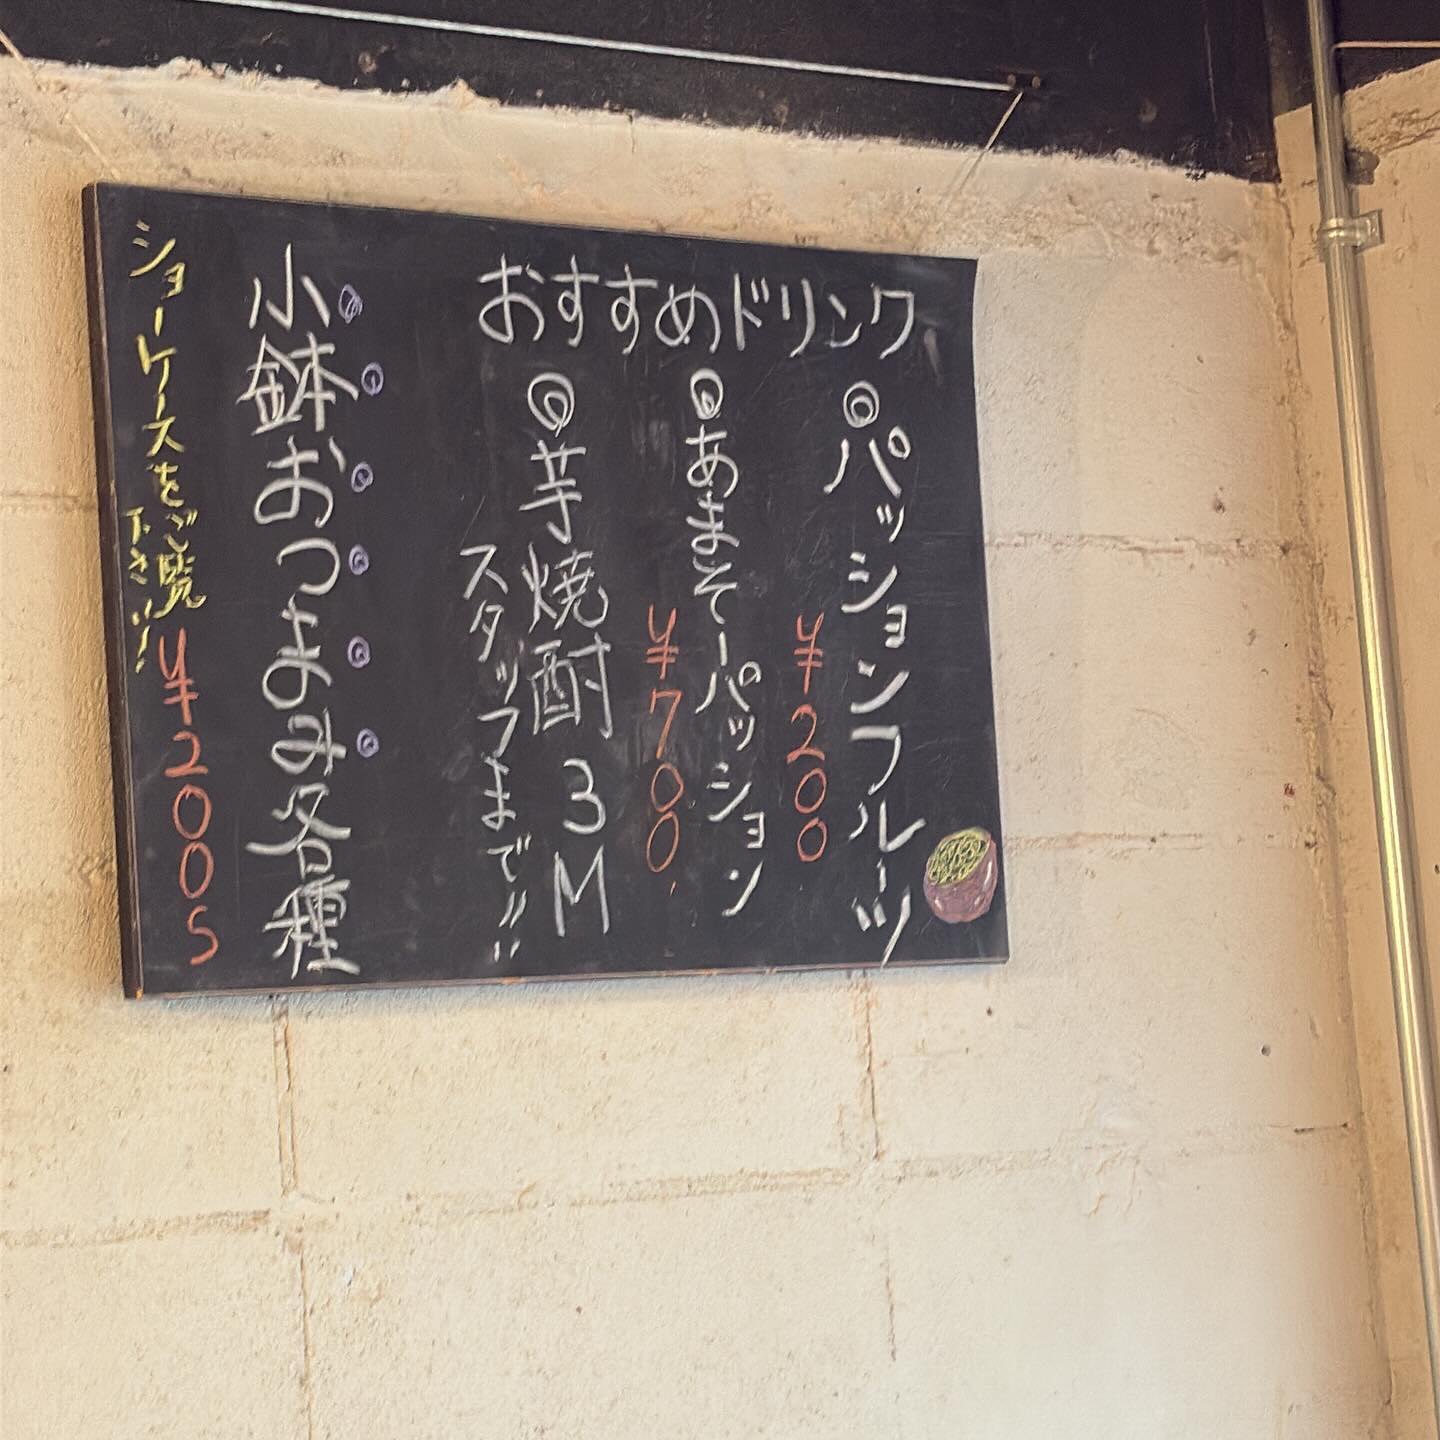 おすすめドリンク
◎パッションフルーツ
¥200
◎あまそーパッション
¥700
◎芋焼酎 3M
スタッフまで!!
小鉢おつまみ各種
ショーケースをご覧
下さい!
¥200S